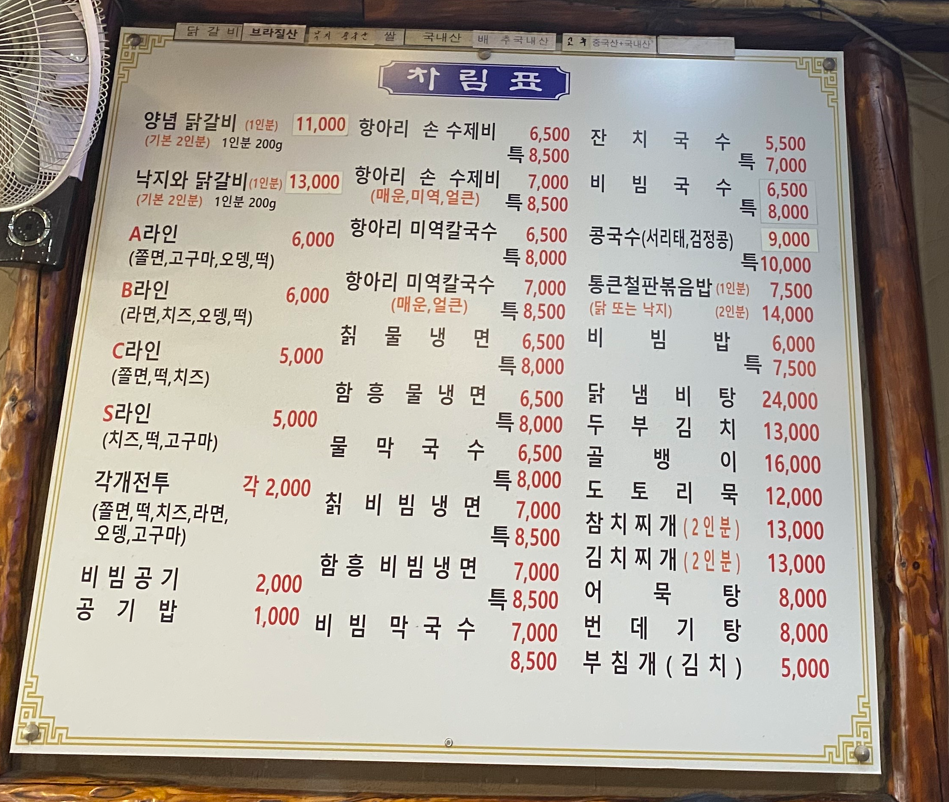 닭갈비 브라질산 쌀 국내산 배추국내산 중국산+국내산
차림표
양념 닭갈비 (1인분) 11,000
(기본 2인분) 1인분 200g
낙지와 닭갈비(1인분) 13,000
(기본 2인분) 1인분 200g
A라인 6,000
(쫄면,고구마,오뎅,떡)
B라인 6,000
(라면,치즈,오뎅,떡)
C라인 5,000
(쫄면,떡,치즈)
S라인 5,000
(치즈,떡,고구마)
각개전투 각 2,000
(쫄면,떡,치즈,라면,
오뎅,고구마)
비빔공기 2,000
공기밥 1,000
항아리 손 수제비 6,500
특 8,500
항아리 손 수제비 7,000
(매운,미역,얼큰) 특 8,500
항아리 미역칼국수 6,500
특 8,000
항아리 미역칼국수 7,000
(매운,얼큰) 특 8,500
칡 물 냉 면 6,500
특 8,000
함 흥 물 냉 면 6,500
특 8,000
물 막 국 수 6,500
특 8,000
칡 비 빔 냉 면 7,000
특 8,500
함 흥 비 빔 냉 면 7,000
특 8,500
비 빔 막 국 수 7,000
8,500
잔 치 국 수 5,500
특 7,000
비 빔 국 수 6,500
특 8,000
콩국수(서리태,검정콩) 9,000
특 10,000
통큰철판볶음밥(1인분) 7,500
(닭 또는 낙지) (2인분) 14,000
비 빔 밥 6,000
특 7,500
닭 냄 비 탕 24,000
두 부 김 치 13,000
골 뱅 이 16,000
도 토 리 묵 12,000
참치찌개(2인분) 13,000
김치찌개(2인분) 13,000
어 묵 탕 8,000
번 데 기 탕 8,000
부침개(김치) 5,000